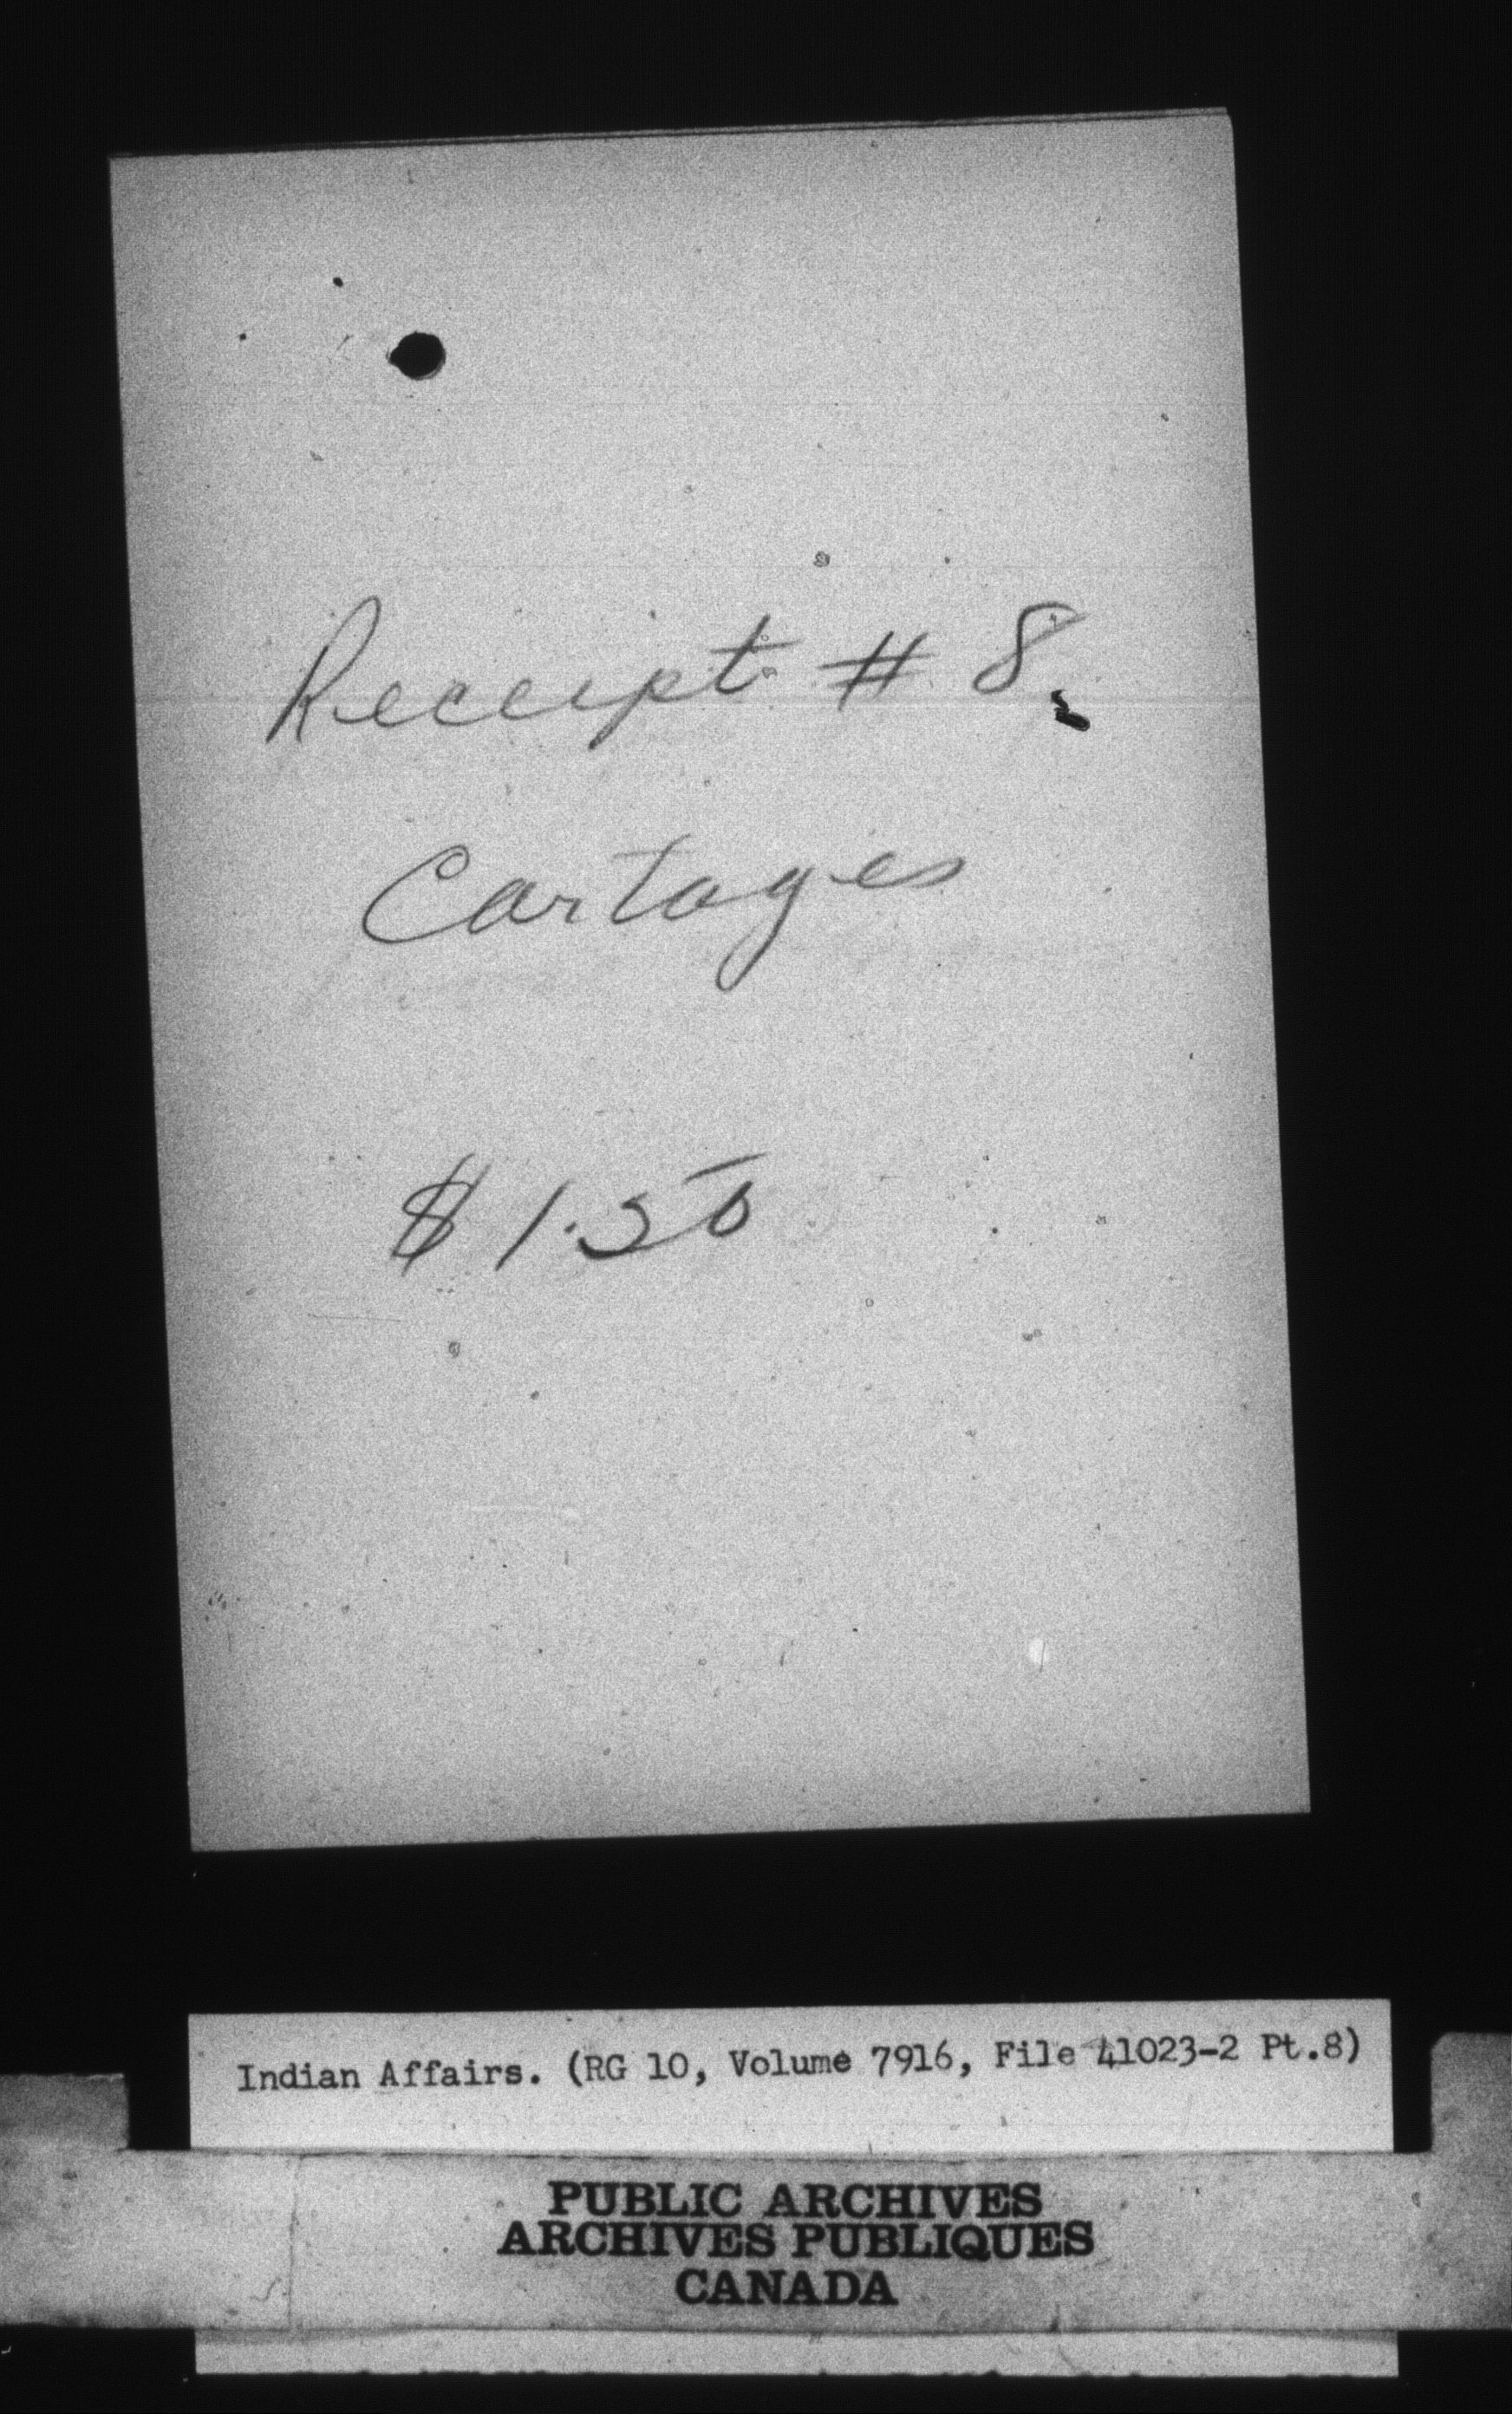 Receipt # 8.
Cartages
$1.50
Indian Affairs. (RG 10, Volume 7916, File 41023-2 Pt.8)
PUBLIC ARCHIVES
ARCHIVES PUBLIQUES
CANADA